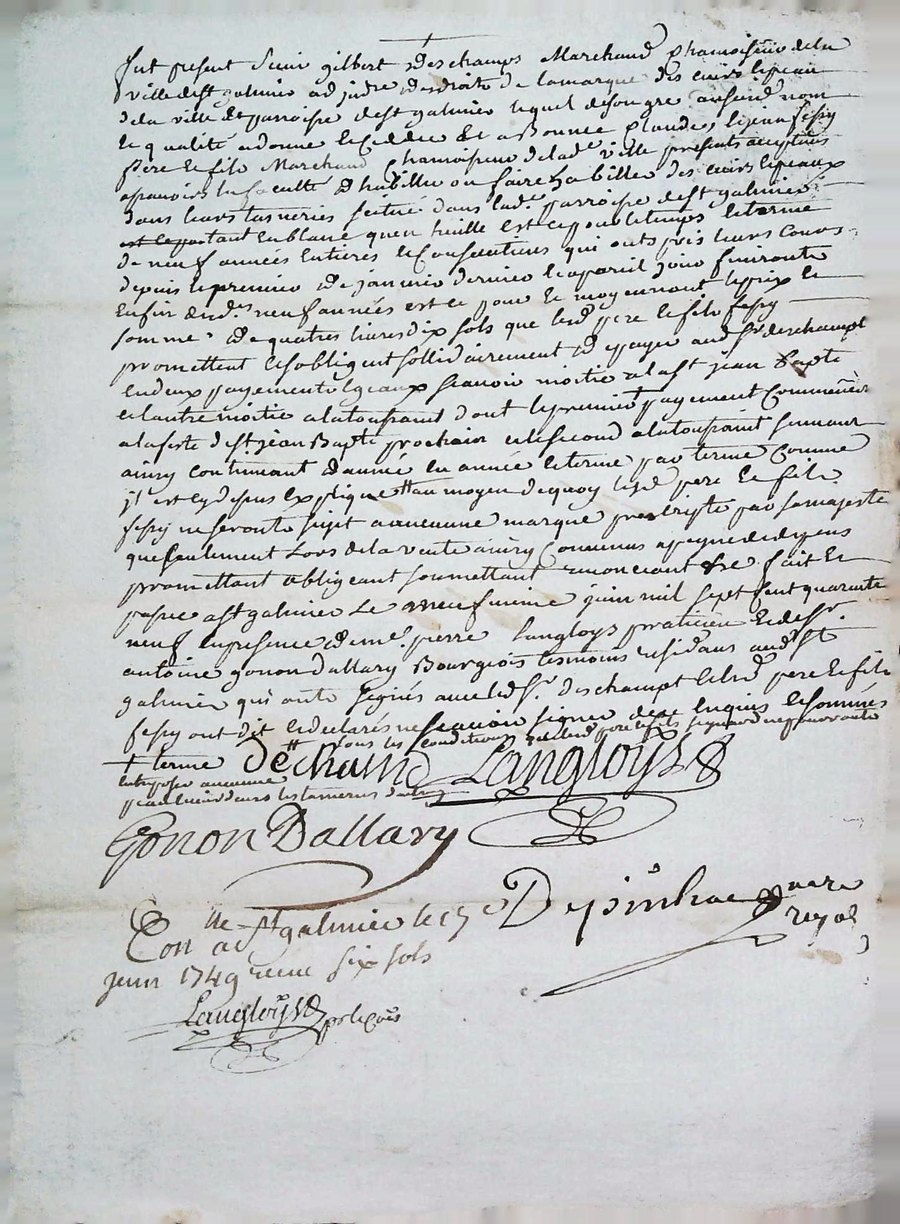 fut present Sieur gilbert deschamps Marchand Chamoiseur de la
ville de st galmier adjudre des droits de la marque des cuirs et peaux
de la ville et parroisse de st galmier lequel de son gre audit nom
et qualité a donné et cedde et abonné
pere et fils Marchand Chamoiseur de lad ville presents acceptants
la faculté d'habiller ou faire habiller des cuirs et peaux
dans leurs tanneries scitué dans lad parroisse de st galmier
en blanc qu'en huille est ce pour le temps et terme
de neuf années entieres et consecutives qui onts pris leurs cours
depuis le premier de janvier dernier et a pareil jour finironts
Enfin desd neuf années est ce pour et moyennant le prix et
somme de quatres livres dix sols que lesd pere et fils fessy
promettent et s'obligent sollidairement de payer aud sr deschampt
en deux payements egeaux scavoir moitié a la st jean Bapte
et l'autre moitié a la toussaint dont le premier payement commancera
a la feste de st jean Bapte prochain et le second a la toussaint suivant
ainsy continuant d'année en année et terme par terme comme
jl est cy dessus expliqué au moyen de quoy lesd pere et fils
fessy ne seronts sujet a aucunne marque prescripte par sa majesté
que seulement lors de la vente ainsy convenus a peyne de depens
promettant obligeant soummettant renonceant &re fait et
passé a st galmier le neufvieme juin mil sept cent quarante
neuf en presence de me pierre Langloys praticien et de sr
antoine gonon dallary Bourgeois tesmoins residans aud st
galmier qui onts signés avec led sr deschampt et lesd pere et fils
fessy ont dit et declarés ne scavoir signer de ce enquis et sommés
+ terme sous les conditions que lesd pere et fils ne pourronts
entreposer aucunne
dans les tanneries
Dechamp Langloys
Gonon Dallary
Depinhac nore
royal
Conlle a st galmier le 19e
juin 1749 receu six sols
Langloys